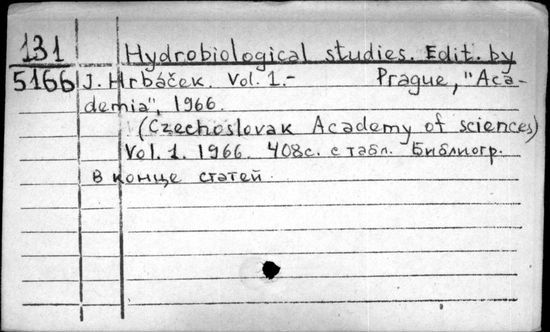 131 Hydrobiological studies. Edit. by
5166 J. Hrbáček. Vol. 1.- Prague, "Aca-
demia", 1966.
(Czechoslovak Academy of sciences)
Vol. 1. 1966. 408с. с табл. Библиогр.
в конце статей.